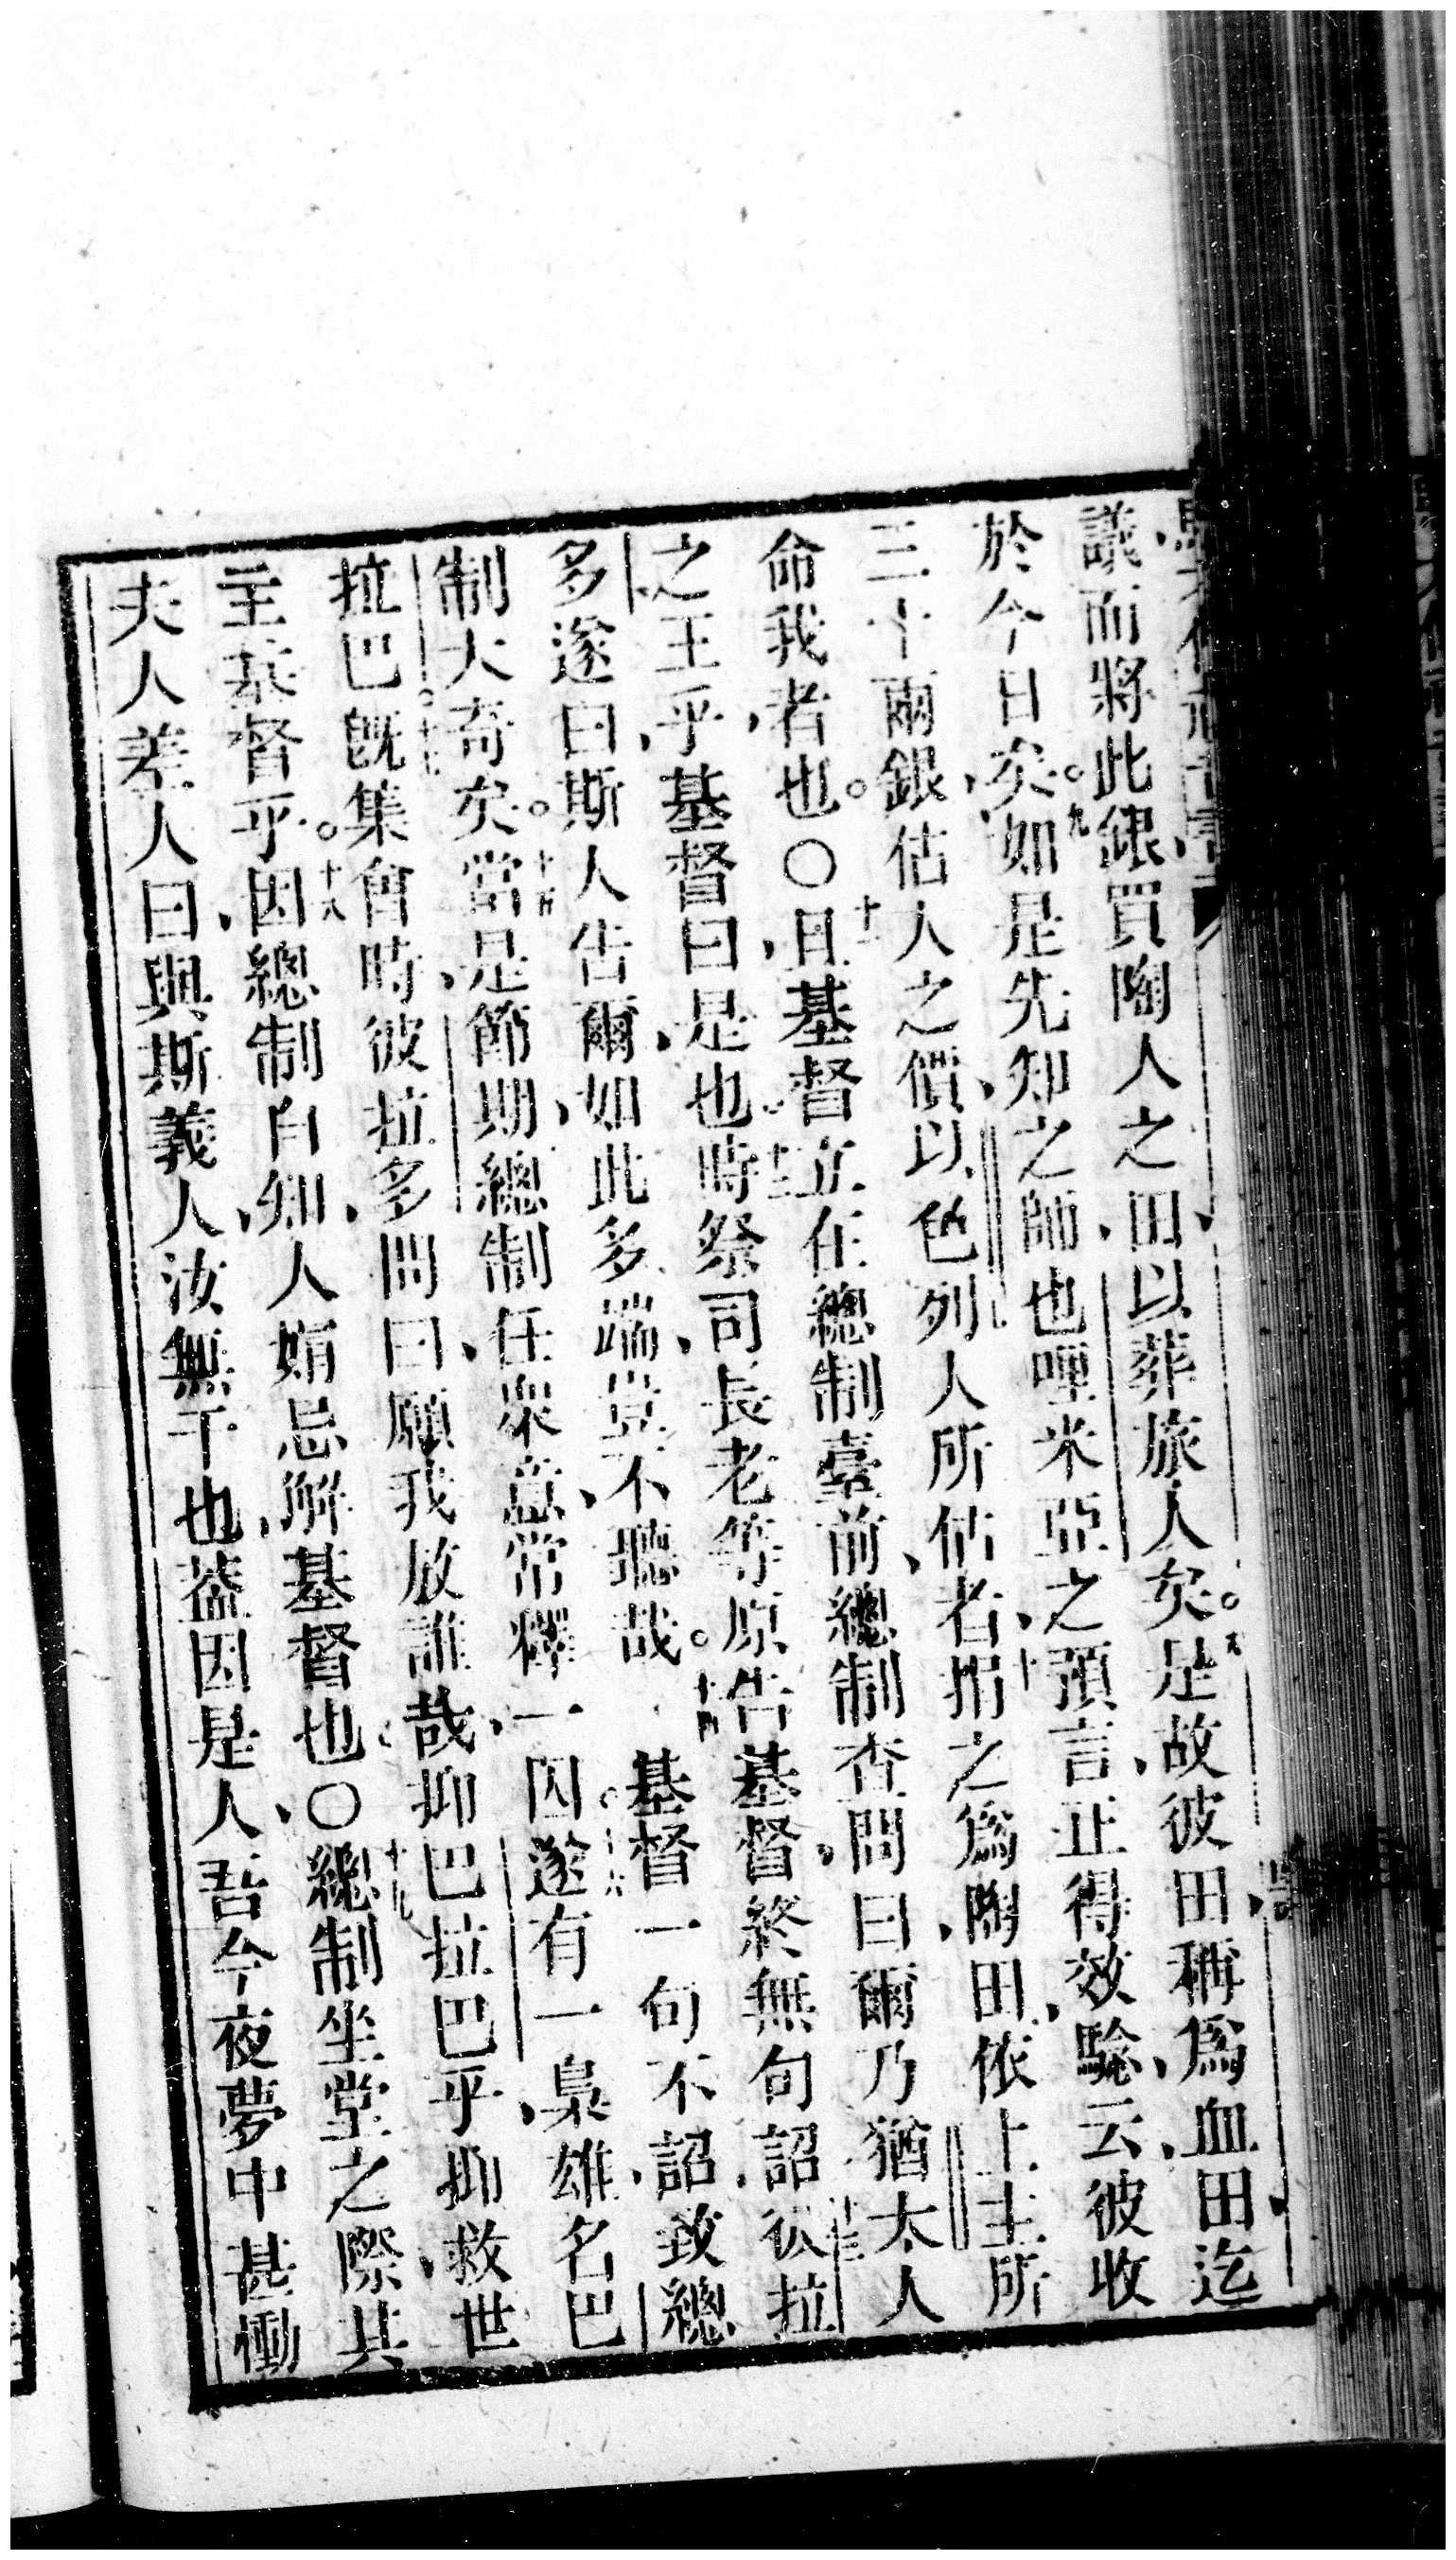 議而將此銀買陶人之田、以葬旅人矣。八是故彼田、稱爲血田、迄
於今日矣。九如是先知之師、也哩米亞之預言、正得效騐、云、彼收
三十兩銀、估人之價、以色列人所估者、十捐之爲陶田、依上主所
命我者也。〇十一且基督立在總制臺前、總制查問曰、爾乃猶太人
之王乎、基督曰、是也。十二時祭司長老等原告基督、終無句詔、十三彼拉
多遂曰、斯人告爾、如此多端、豈不聽哉。十四基督一句不詔、致總
制大奇矣。十五當是節期、總制任衆意、常釋一囚。十六遂有一梟雄、名巴
拉巴。十七旣集會時、彼拉多問曰、願我放誰哉、抑巴拉巴乎、抑救世
主基督乎。十八因總制自知、人娟忌解基督也。〇十九總制坐堂之際、其
夫人差人曰、與斯義人、汝無干也、蓋因是人、吾今夜夢中甚慟